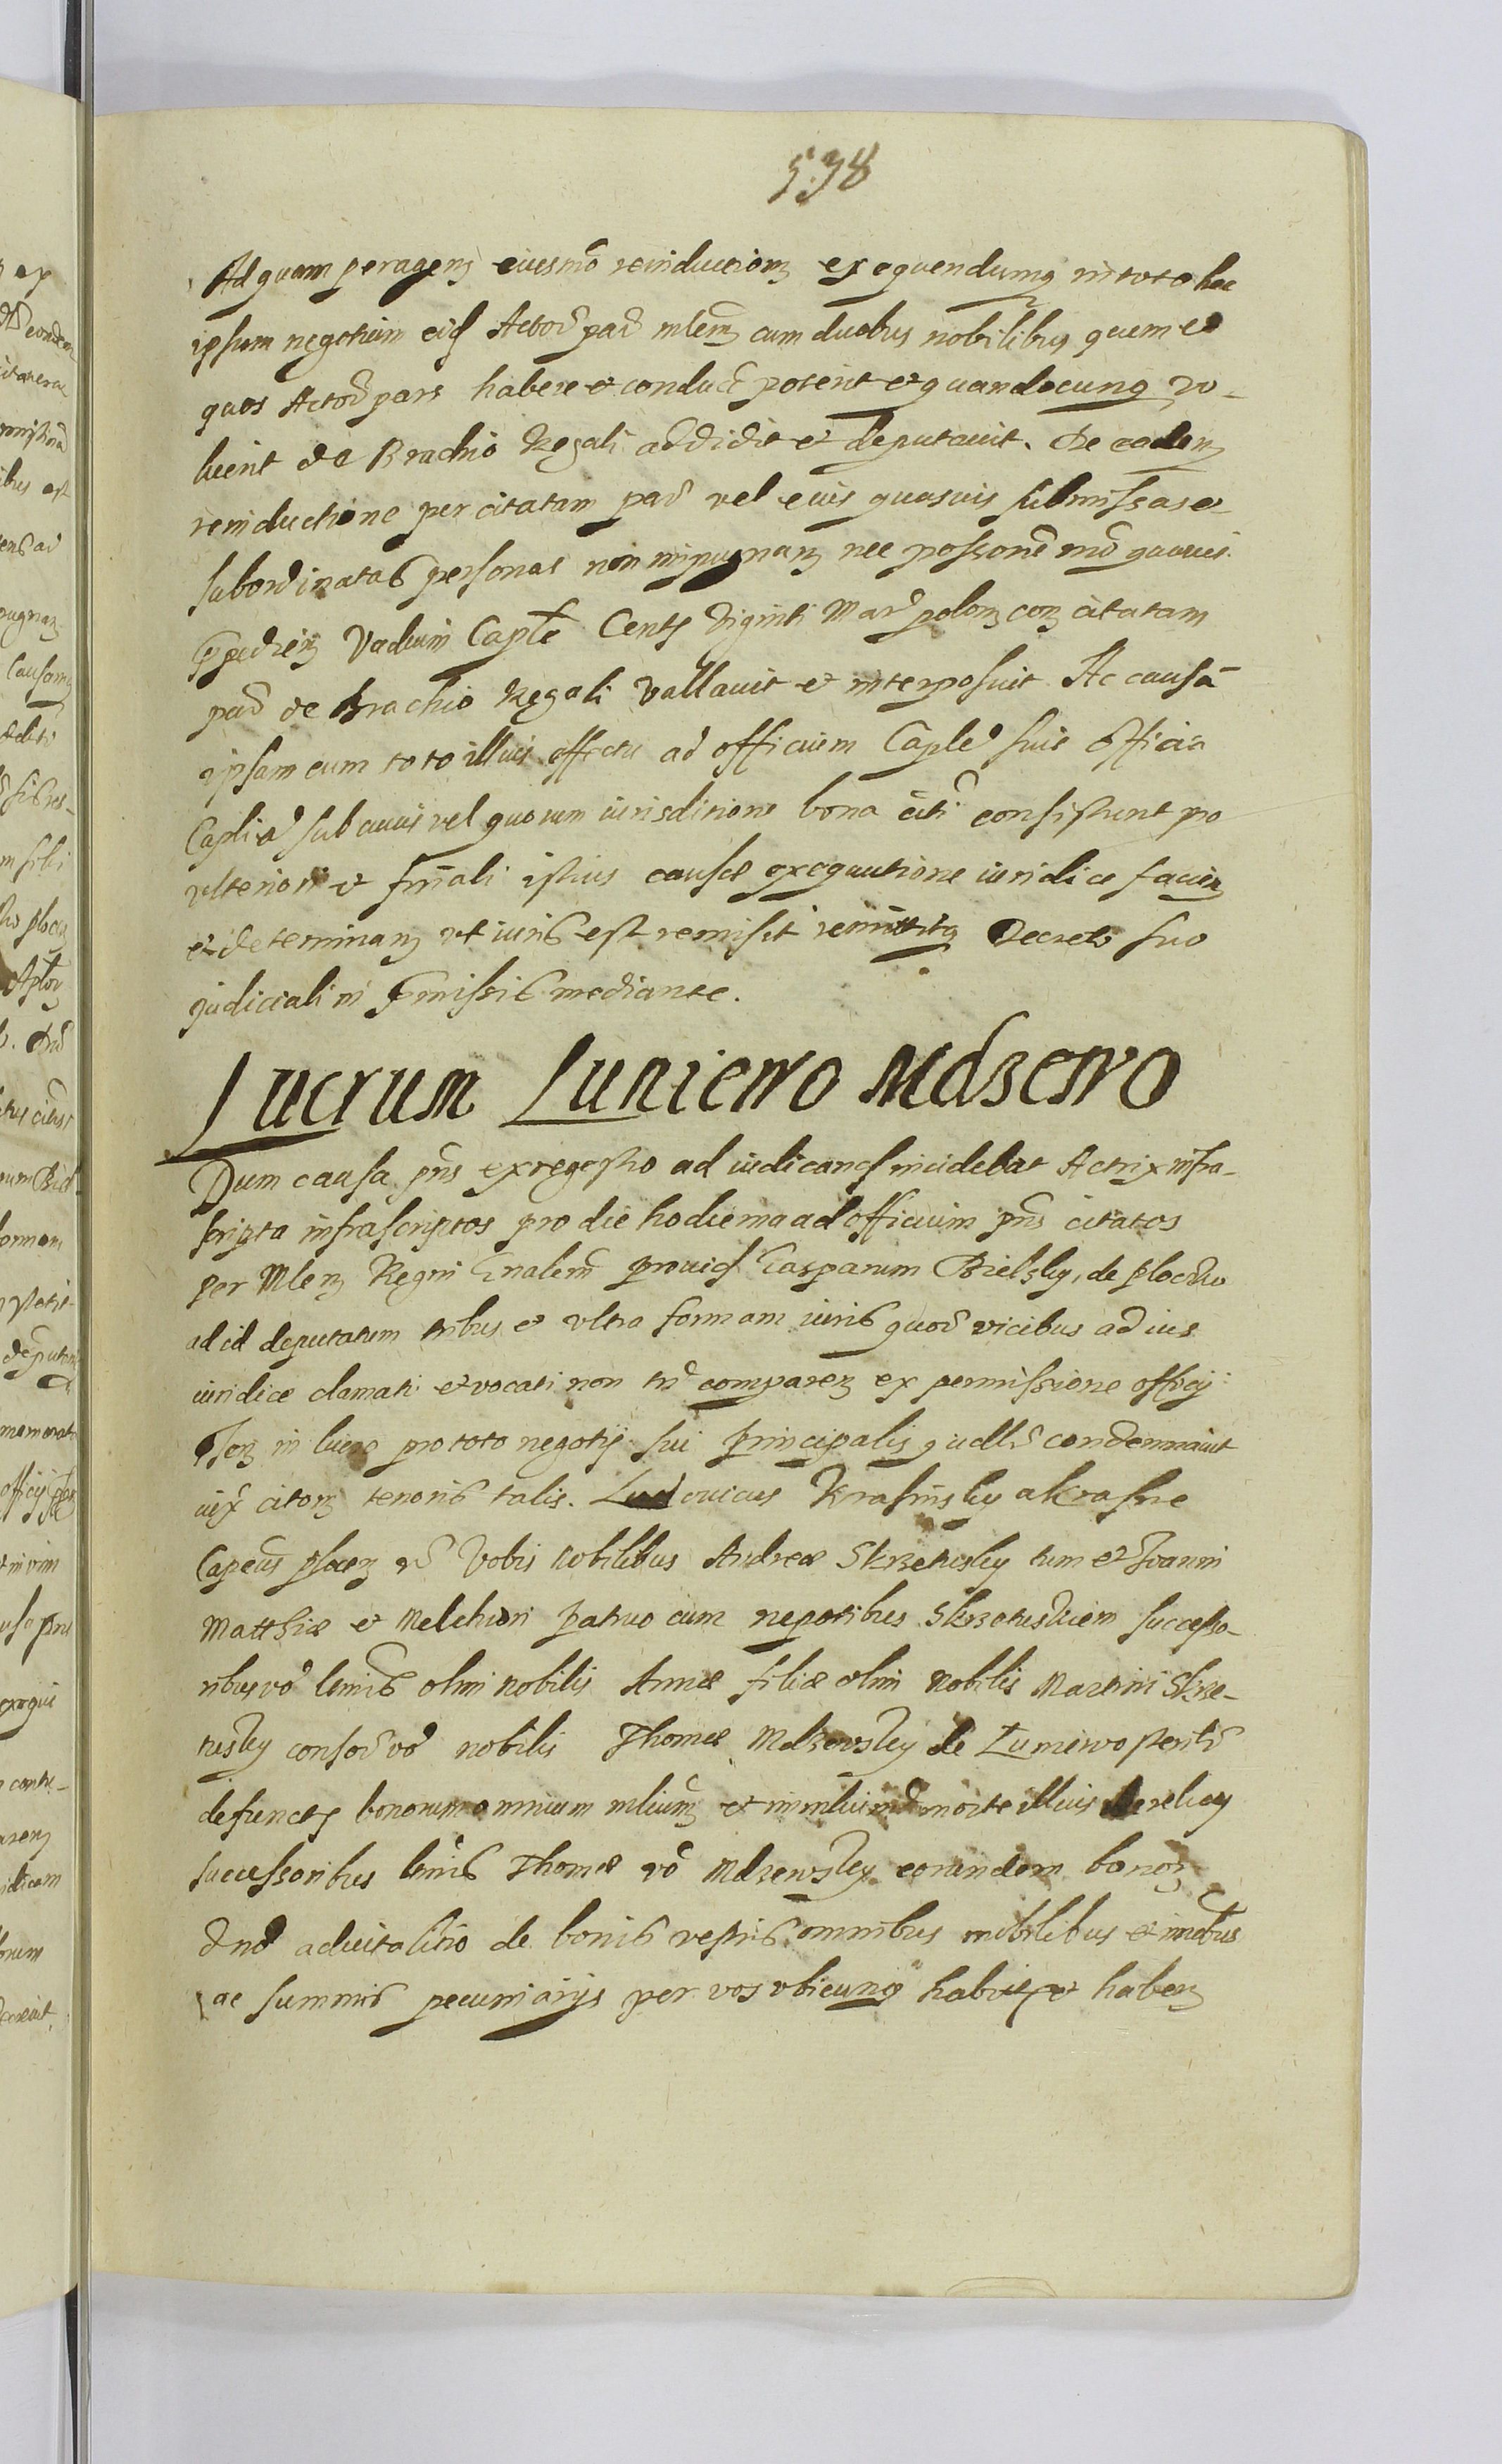 538
Ad quam peragenz eiusmō reinductionz exequendumq in toto hoc
ipsum negotium eid Actor̄ par̄ mlem cum duobus nobilibus quem et
quos Actor̄ pars habere et conduc̄ poterit et quandocunq vo-
luerit de Brachio Regali addidit et deputauit. De eadem
reinductione per citatam par̄ vel eius quasuis submissas et
subordinatas personas non impugnanz nec possone mō quouis
Vadium Caple Centz Viginti Mar̄ polonz conz citatam
par̄ de Brachio Regali Vallauit et interposuit. Ac causā
ipsam cum toto illius effectu ad officium Caple siue officia
Caplia sub cuius vel quorum iurisditione bona citi consistunt pro
vlteriori et finali istius causæ exequutione iuridice facien
et determinanz vt iuris est remisit remittitq Decreto suo
judiciali in pmissis mediante.
Lucrum Luniewo Mdzewo
Dum causa pns ex regestro ad iudicand incidebat Actrix infra-
scripta infrascriptos pro die hodierna ad officium pns citatos
per Mlem Regni Gnalem prouid Casparum Bielsky, de Plocko
ad id deputatum tribus et vltra formam iuris quor̄ vicibus ad ius
iuridice clamati et vocati non tn̄ comparenz ex permissione officij
in lucro pro toto negotij sui principalis condemnauit
iux citonz tenoris talis. Ludouicus Krasinsky a Krasne
Capeus Vobis nobilibus Andreæ Skrzetusky tum et Joanni
Matthiæ et Melchiori patruo cum nepotibus Skrzetuskiem successo-
ribus vō ltimis olim nobilis Annæ filiæ olim nobilis Martini Skrze-
tusky consor̄ vō nobilis Thomæ Mdzewsky de Luniewo sterilr̄
defunctz bonorum omnium mlium et morte illius derelictz
successoribus ltimis Thomæ vō Mdzewsky eorundem bonorz
dnō aduitalitio de bonis vestris omnibus mobilibus et imbus
ac summis pecuniarijs per vos vbicunq habitz et habenz